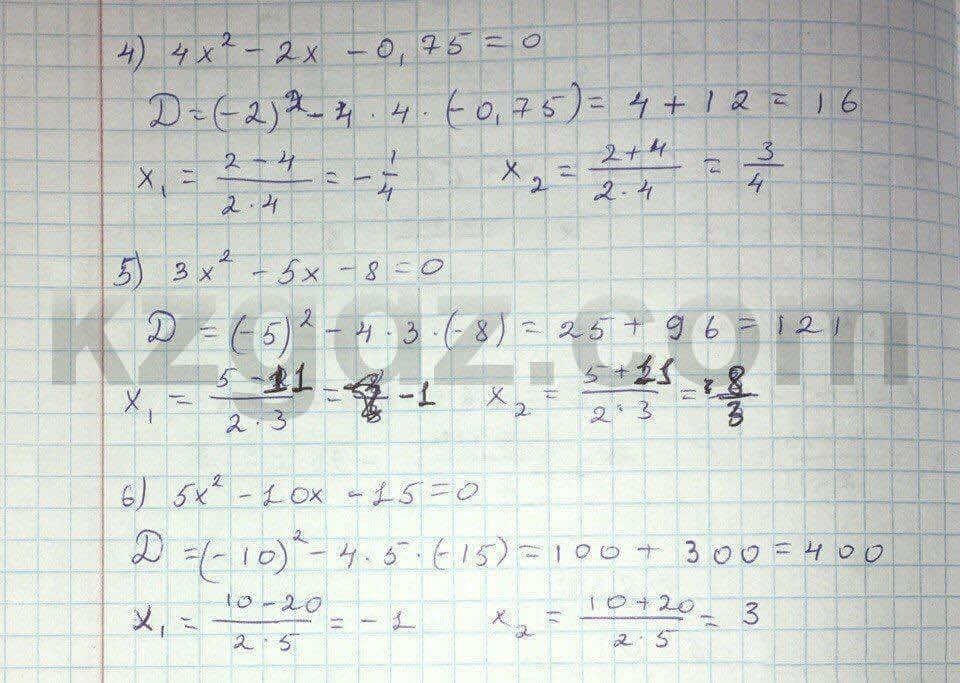 4) 4x² - 2x - 0,75 = 0
D = (-2)² - 4 · 4 · (-0,75) = 4 + 12 = 16
x₁ = (2 - 4)/(2 · 4) = -1/4    x₂ = (2 + 4)/(2 · 4) = 3/4
5) 3x² - 5x - 8 = 0
D = (-5)² - 4 · 3 · (-8) = 25 + 96 = 121
x₁ = (5 - 11)/(2 · 3) = -1    x₂ = (5 + 11)/(2 · 3) = 8/3
6) 5x² - 10x - 15 = 0
D = (-10)² - 4 · 5 · (-15) = 100 + 300 = 400
x₁ = (10 - 20)/(2 · 5) = -1    x₂ = (10 + 20)/(2 · 5) = 3
kzgdz.com